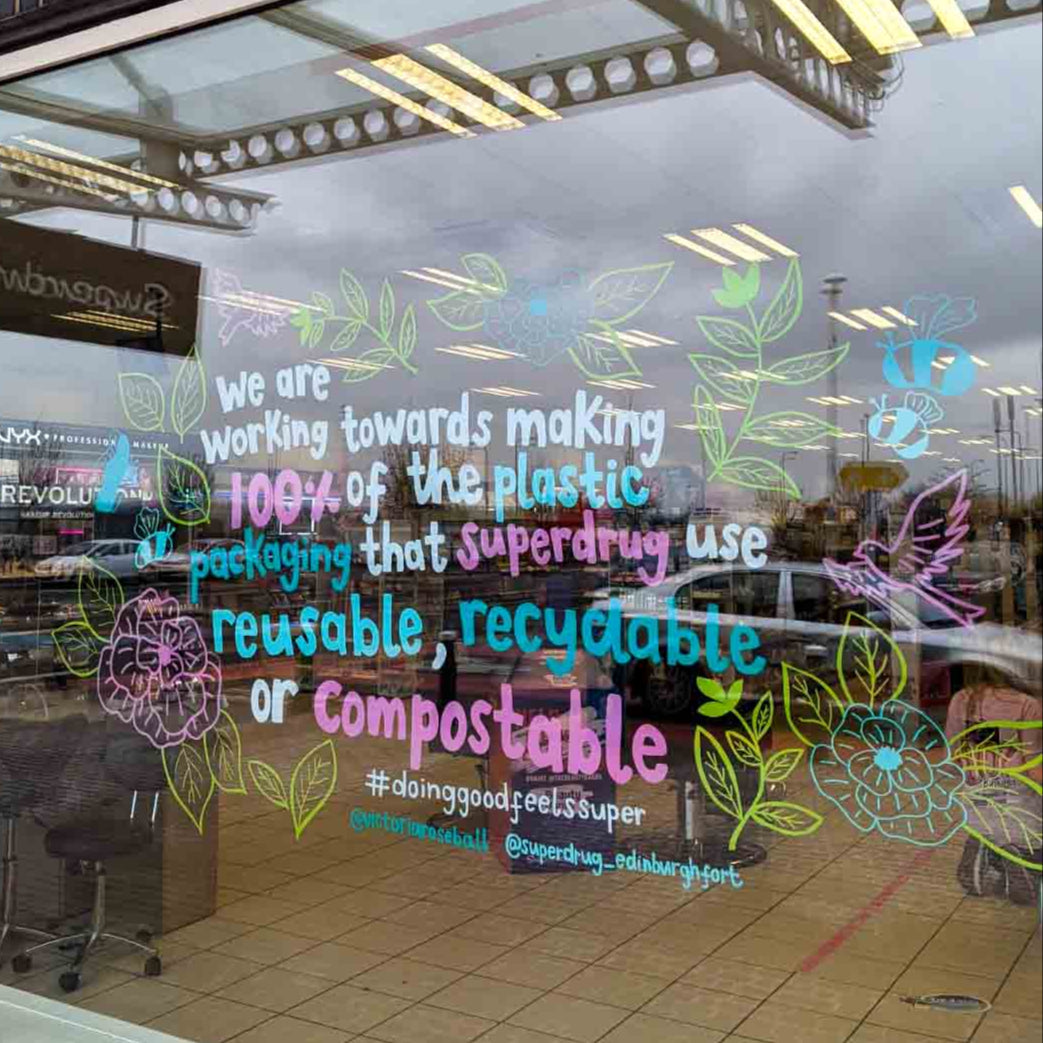 Superdr
NYX PROFESSIONAL MAKEUP
REVOLUTION
MAKEUP REVOLUTION
We are
working towards making
100% of the plastic
packaging that superdrug use
reusable, recyclable
or compostable
#doinggoodfeelssuper
@victoriaroseball @superdrug_edinburghfort